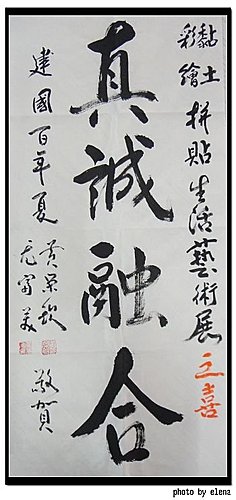 黏土
彩繪
拼貼生活藝術展
之喜
真誠融合
建國百年夏
敬賀
photo by elena